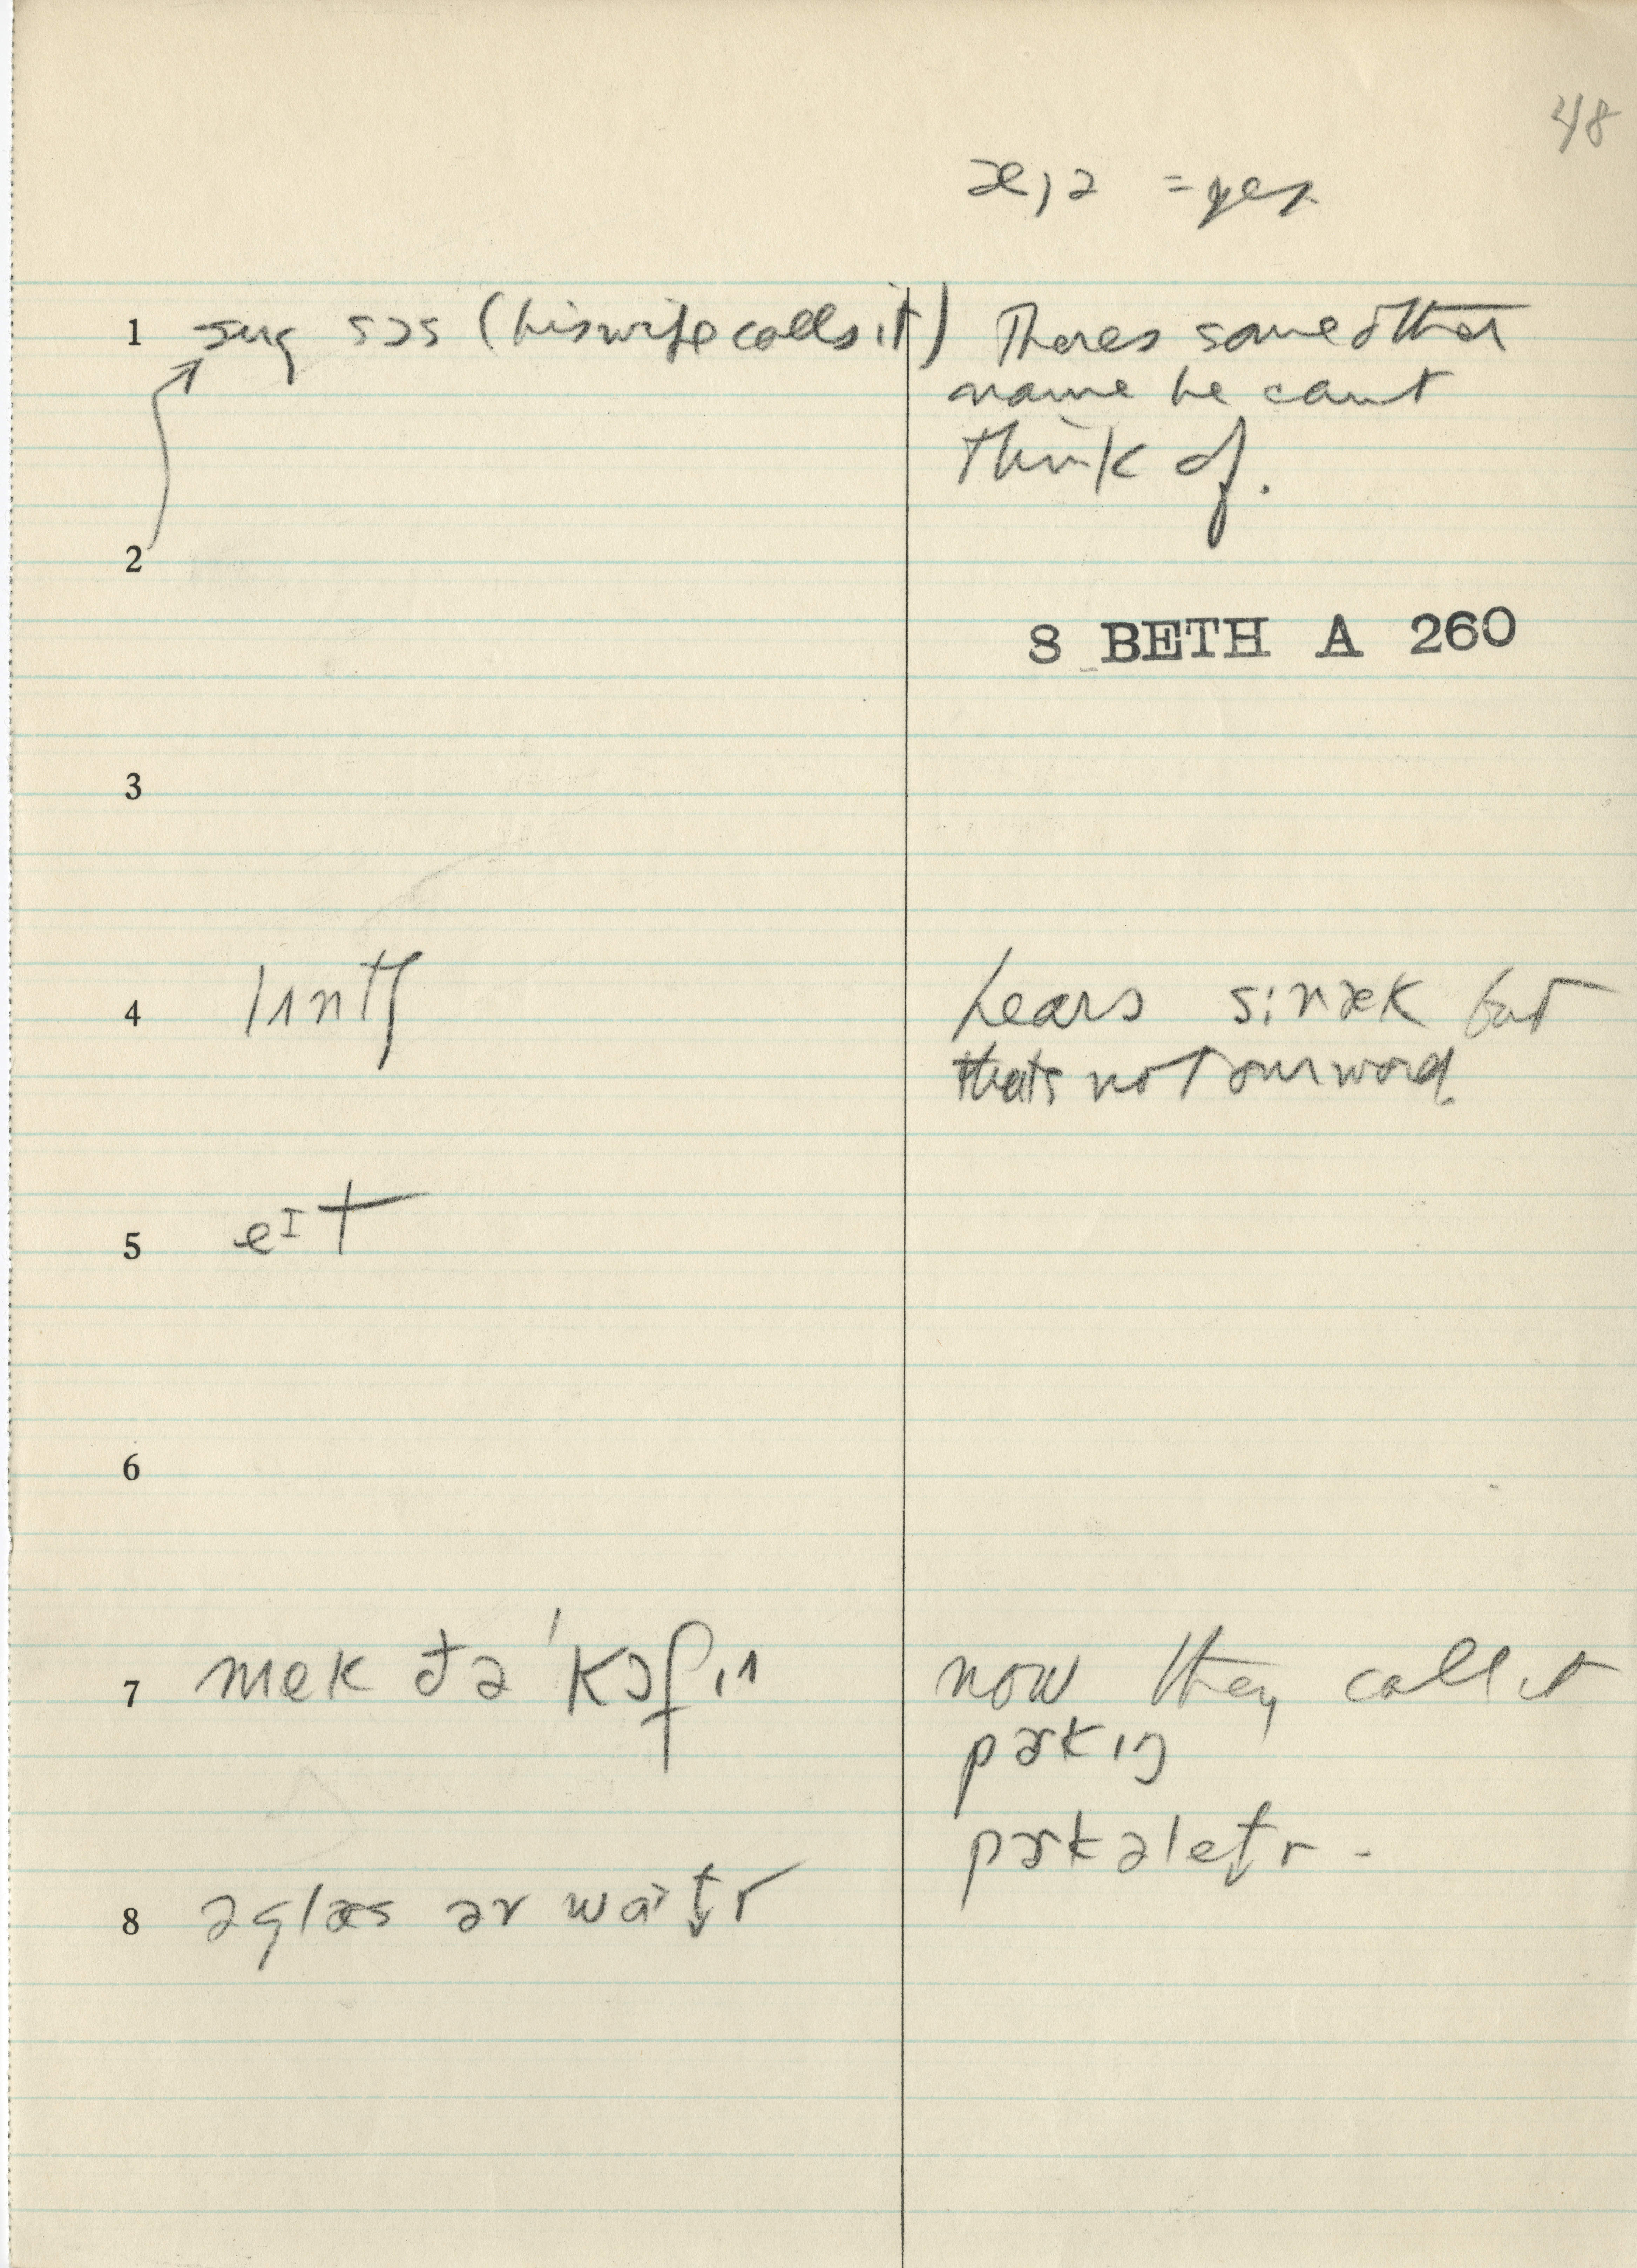 48
æ,ə = yes
1 ʃug sɔs (his wife calls it) Theres some other
name he cant
think of.
2
8 BETH A 260
3
4 lʌntʃ hears sinæk but
thats not our word
5 eɪt
6
7 mek ðə ˈkɔfɪɪ now they call it
pɚkɪŋ
pɚkəlet̬r -
8 ə glæs əv wat̬r